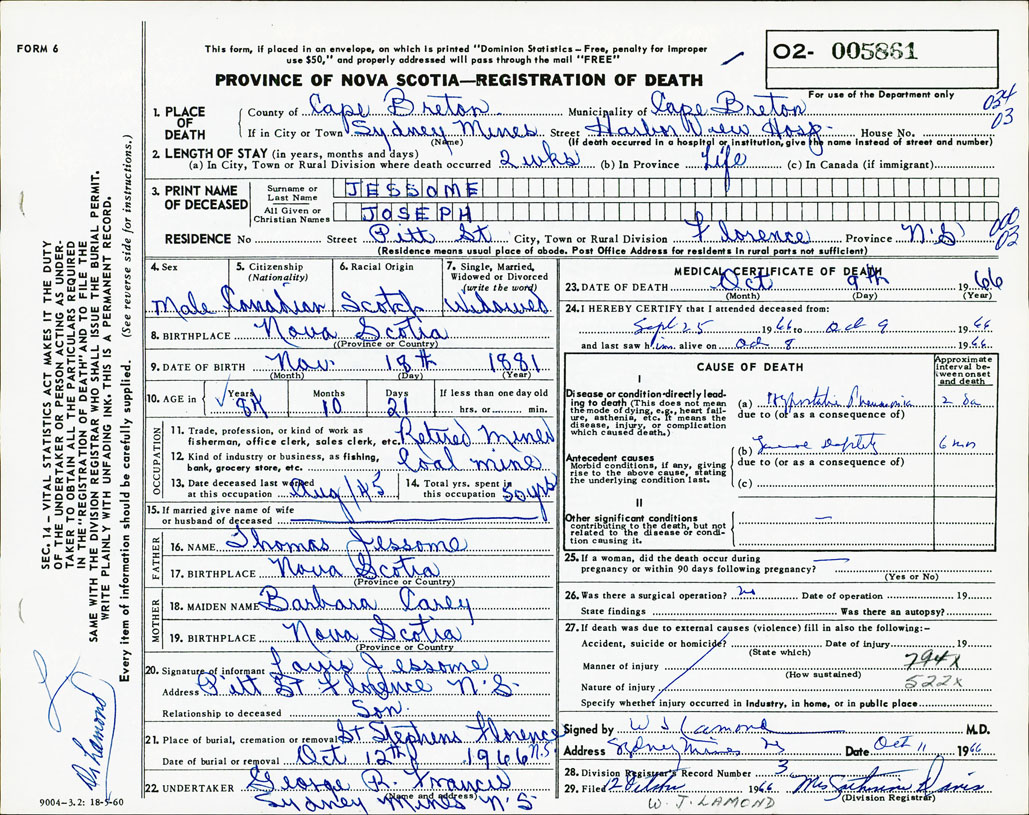 FORM 6
This form, if placed in an envelope, on which is printed "Dominion Statistics – Free, penalty for improper
use $50," and properly addressed will pass through the mail "FREE"
PROVINCE OF NOVA SCOTIA—REGISTRATION OF DEATH
O2- 005861
For use of the Department only
034
03
1. PLACE OF DEATH
County of Cape Breton Municipality of Cape Breton
If in City or Town Sydney Mines Street Harbor View Hosp. House No.
(Name) (If death occurred in a hospital or institution, give the name instead of street and number)
2. LENGTH OF STAY (in years, months and days)
(a) In City, Town or Rural Division where death occurred 2 wks (b) In Province Life (c) In Canada (if immigrant)
3. PRINT NAME OF DECEASED
Surname or Last Name JESSOME
All Given or Christian Names JOSEPH
000
03
RESIDENCE No Street Pitt St City, Town or Rural Division Florence Province N.S
(Residence means usual place of abode. Post Office Address for residents in rural parts not sufficient)
4. Sex Male
5. Citizenship (Nationality) Canadian
6. Racial Origin Scotch
7. Single, Married, Widowed or Divorced (write the word) Widowed
8. BIRTHPLACE Nova Scotia
(Province or Country)
9. DATE OF BIRTH Nov. 18th 1881
(Month) (Day) (Year)
10. AGE in Years 84 Months 10 Days 21 If less than one day old
hrs. or min.
OCCUPATION
11. Trade, profession, or kind of work as
fisherman, office clerk, sales clerk, etc. Retired Miner
12. Kind of industry or business, as fishing,
bank, grocery store, etc. Coal mine
13. Date deceased last worked
at this occupation Aug/45
14. Total yrs. spent in
this occupation 50 yrs
15. If married give name of wife
or husband of deceased
FATHER
16. NAME Thomas Jessome
17. BIRTHPLACE Nova Scotia
(Province or Country)
MOTHER
18. MAIDEN NAME Barbara Carey
19. BIRTHPLACE Nova Scotia
(Province or Country
20. Signature of informant Louis Jessome
Address Pitt St Florence N.S.
Relationship to deceased Son.
21. Place of burial, cremation or removal St Stephens Florence N.S
Date of burial or removal Oct 12th 1966
22. UNDERTAKER George R. Francis
(Name and address)
Sydney Mines N.S
9004–3.2: 18-5-60
MEDICAL CERTIFICATE OF DEATH
23. DATE OF DEATH Oct 9th 1966
(Month) (Day) (Year)
24. I HEREBY CERTIFY that I attended deceased from:
Sept 25 1966 to Oct 9 1966
and last saw him alive on Oct 8 1966
CAUSE OF DEATH
Approximate interval between onset and death
I
Disease or condition directly leading to death (This does not mean the mode of dying, e.g., heart failure, asthenia, etc. It means the disease, injury, or complication which caused death.)
(a) Hypostatic Pneumonia 2 da
due to (or as a consequence of)
Antecedent causes
Morbid conditions, if any, giving rise to the above cause, stating the underlying condition last.
(b) 6 mos
due to (or as a consequence of)
(c)
II
Other significant conditions
contributing to the death, but not related to the disease or condition causing it.
25. If a woman, did the death occur during
pregnancy or within 90 days following pregnancy?
(Yes or No)
26. Was there a surgical operation? no Date of operation 19
State findings Was there an autopsy?
27. If death was due to external causes (violence) fill in also the following:–
Accident, suicide or homicide? Date of injury 19
(State which)
Manner of injury 794x
(How sustained)
Nature of injury 522x
Specify whether injury occurred in Industry, in home, or in public place
Signed by W J Lamond M.D.
Address Sydney Mines NS Date Oct 11 1966
28. Division Registrar's Record Number 3
29. Filed 12 1966 Mrs Davis
(Division Registrar)
W. J. LAMOND
SEC. 14 – VITAL STATISTICS ACT MAKES IT THE DUTY
OF THE UNDERTAKER OR PERSON ACTING AS UNDER-
TAKER TO OBTAIN ALL THE PARTICULARS REQUIRED
IN THE "REGISTRATION OF DEATH" AND TO FILE THE
SAME WITH THE DIVISION REGISTRAR WHO SHALL ISSUE THE BURIAL PERMIT.
WRITE PLAINLY WITH UNFADING INK. THIS IS A PERMANENT RECORD.
Every item of information should be carefully supplied. (See reverse side for instructions.)
Dr Lamond